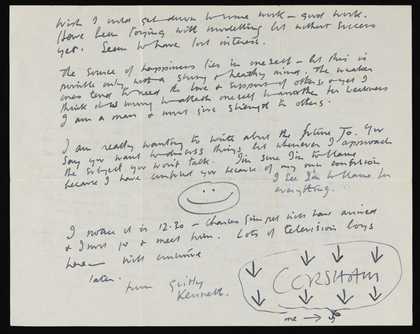 wish I could get down to some work – good work.
Have been toying with modelling but without success
yet. Seem to have lost interest.
The source of happiness lies in oneself – but this is
possible only with a strong & healthy mind. The weaker
ones tend to need the love & support of others & yet I
think it's wrong to attach oneself to another for weakness
I am a man & must give strength to others.
I am really wanting to write about the future Jo. You
say you want to discuss things but whenever I approach
the subject you won't talk. I'm sure I'm to blame
because I have confused you because of my own confusion
I see I'm to blame for
everything.
I notice it is 12.30 – Charles has arrived
& I must go & meet him. Lots of television boys
here – will continue
later.
Guilty
Kenneth.
CORSHAM
me →